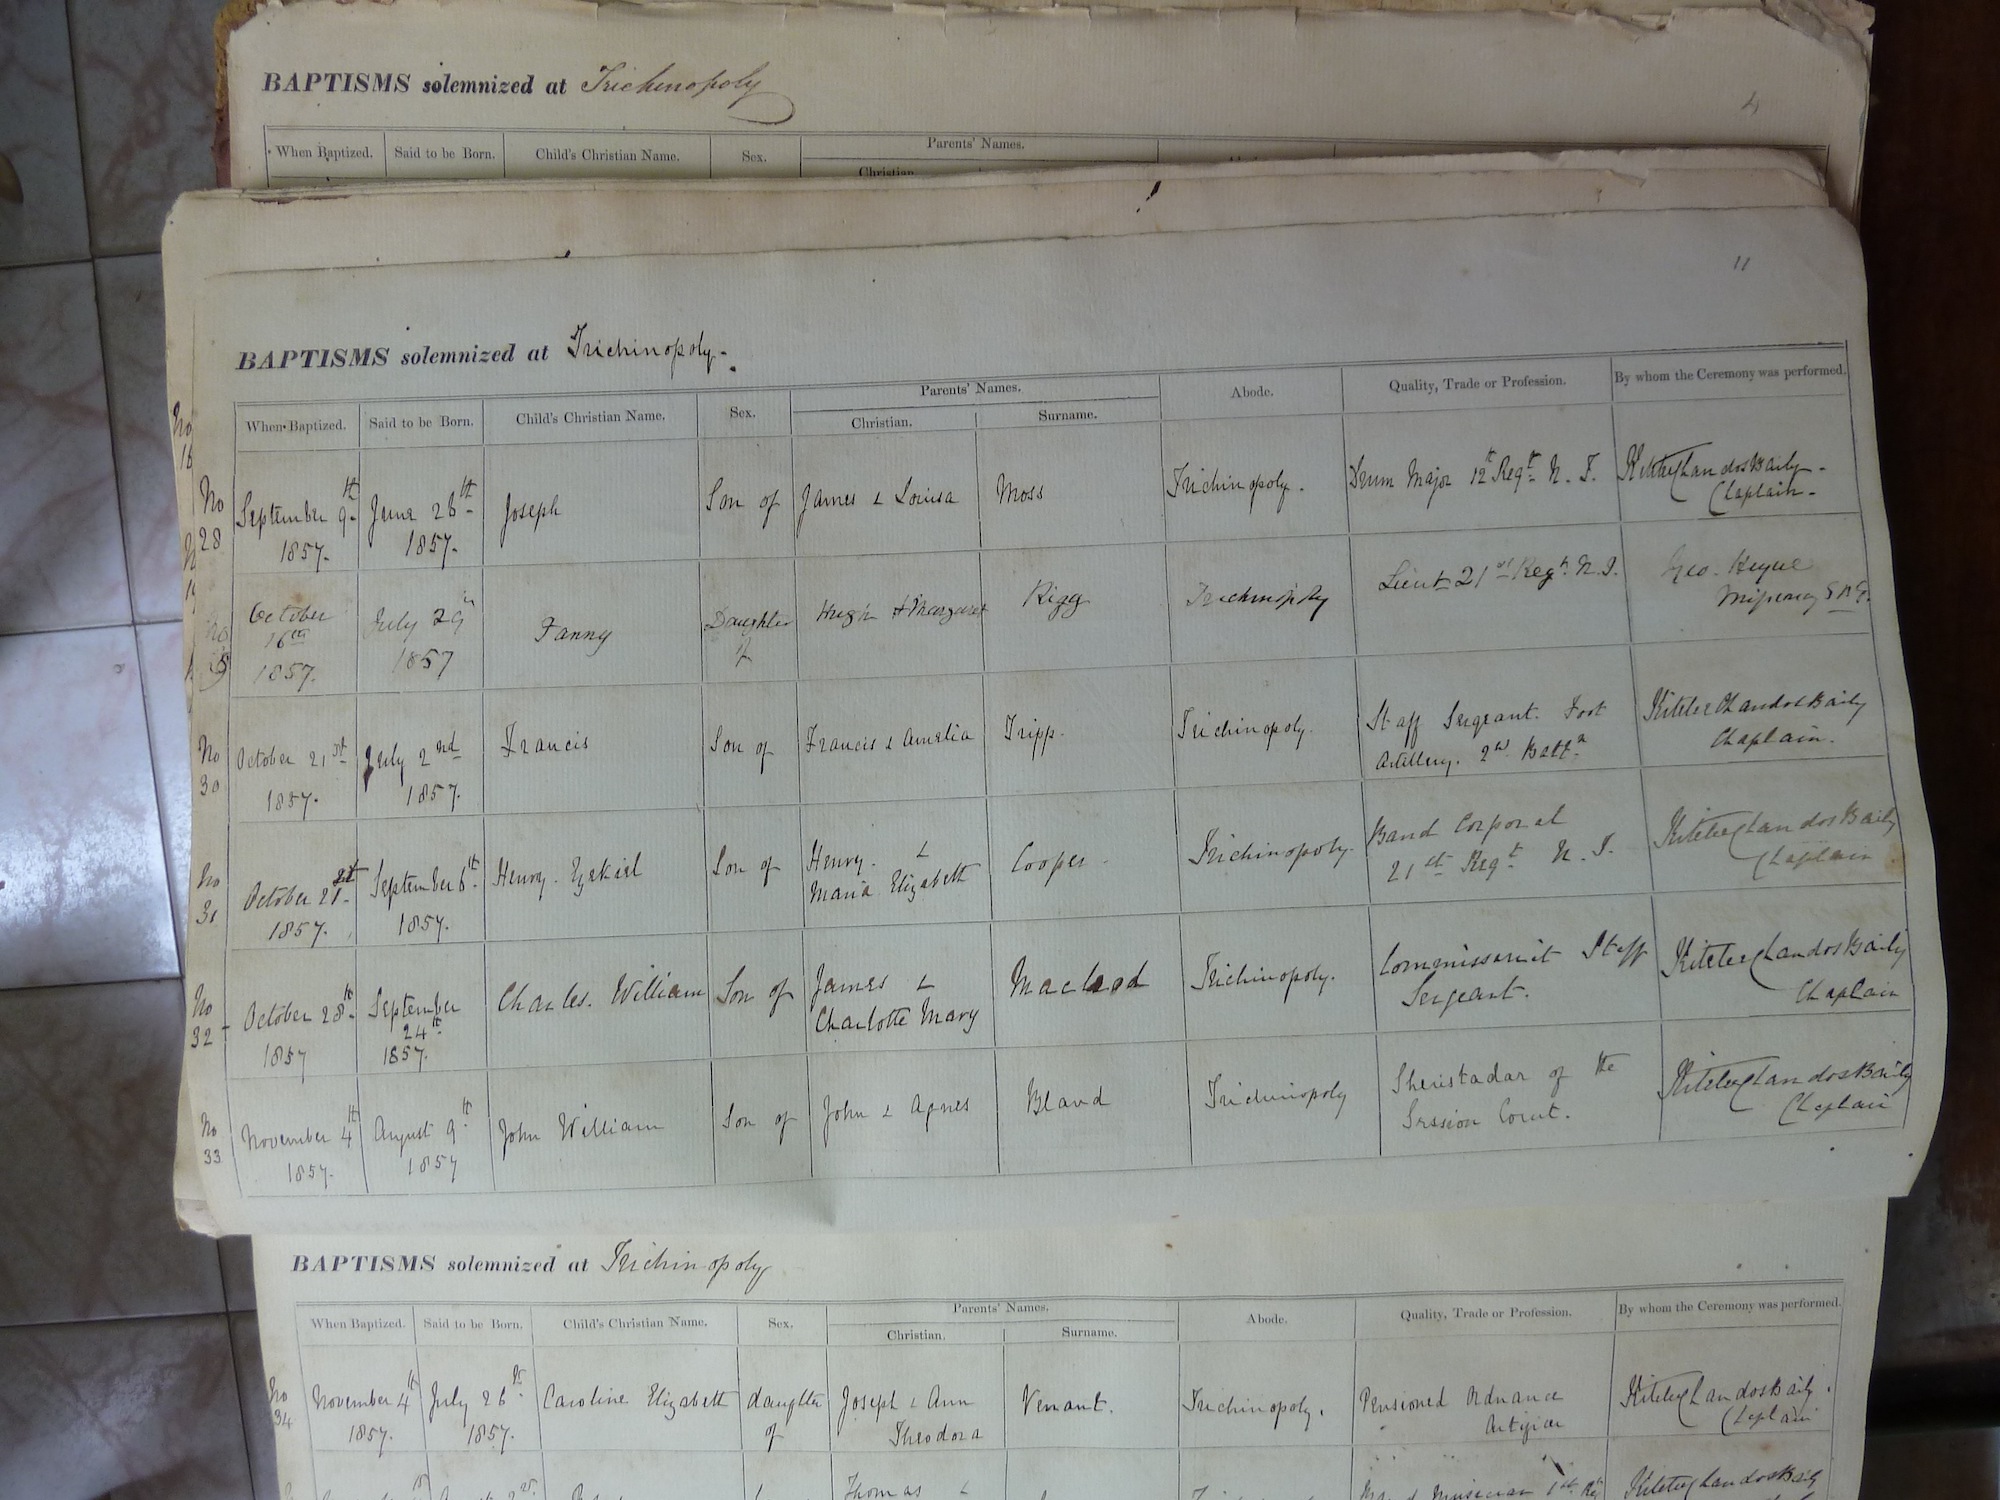 BAPTISMS solemnized at Trichinopoly
4
When Baptized. Said to be Born. Child's Christian Name. Sex. Parents' Names.
Christian
11
BAPTISMS solemnized at Trichinopoly.
When Baptized. Said to be Born. Child's Christian Name. Sex. Parents' Names. Abode. Quality, Trade or Profession. By whom the Ceremony was performed.
Christian. Surname.
No 28 September 9th 1857. June 26th 1857. Joseph Son of James & Louisa Moss Trichinopoly. Drum Major 12th Regt. N. I. Chaplain.
October 16th 1857. July 29 1857 Fanny Daughter of Hugh & Margaret Rigg Trichinopoly Lieut 21st Regt. N. I. Geo. Heyne Missionary S.P.G.
No 30 October 21st 1857. July 2nd 1857. Francis Son of Francis & Amelia Tripp. Trichinopoly. Staff Sergeant. Foot Artillery. 2nd Battn. Chandos Baily Chaplain.
No 31 October 21st 1857. September 6th 1857. Henry. Ezekiel Son of Henry. & Maria Elizabeth Cooper Trichinopoly. Band Corporal 21st Regt N. I. Chandos Baily Chaplain
No 32 October 28th 1857 September 24th 1857. Charles. William Son of James & Charlotte Mary Macleod Trichinopoly. Commissariat Staff Sergeant. Chandos Baily Chaplain
No 33 November 4th 1857. August 9th 1857 John William Son of John & Agnes Bland Trichinopoly Sheristadar of the Session Court. Chandos Baily Chaplain
BAPTISMS solemnized at Trichinopoly
When Baptized. Said to be Born. Child's Christian Name. Sex. Parents' Names. Abode. Quality, Trade or Profession. By whom the Ceremony was performed.
Christian. Surname.
No 34 November 4th 1857. July 26th 1857. Caroline Elizabeth daughter of Joseph & Ann Theodora Venant. Trichinopoly. Pensioned Ordnance Artificer Chandos Baily. Chaplain
Thomas & Musician 1st Regt Chandos Baily